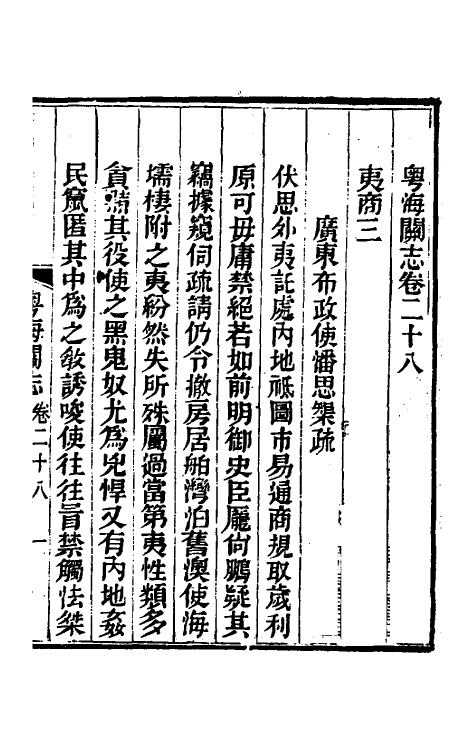 粤海關志卷二十八
夷商三
廣東布政使潘思榘疏
伏思外夷託處內地祗圖市易通商規取歲利
原可毋庸禁絕若如前明御史臣龐尙鵬疑其
竊據窺伺疏請仍令撤房居舶灣泊舊澳使海
壖棲附之夷紛然失所殊屬過當第夷性類多
貪黠其役使之黑鬼奴尤爲兇悍又有內地姦
民竄匿其中爲之敎誘唆使往往冐禁觸法桀
粤海關志 卷二十八 一